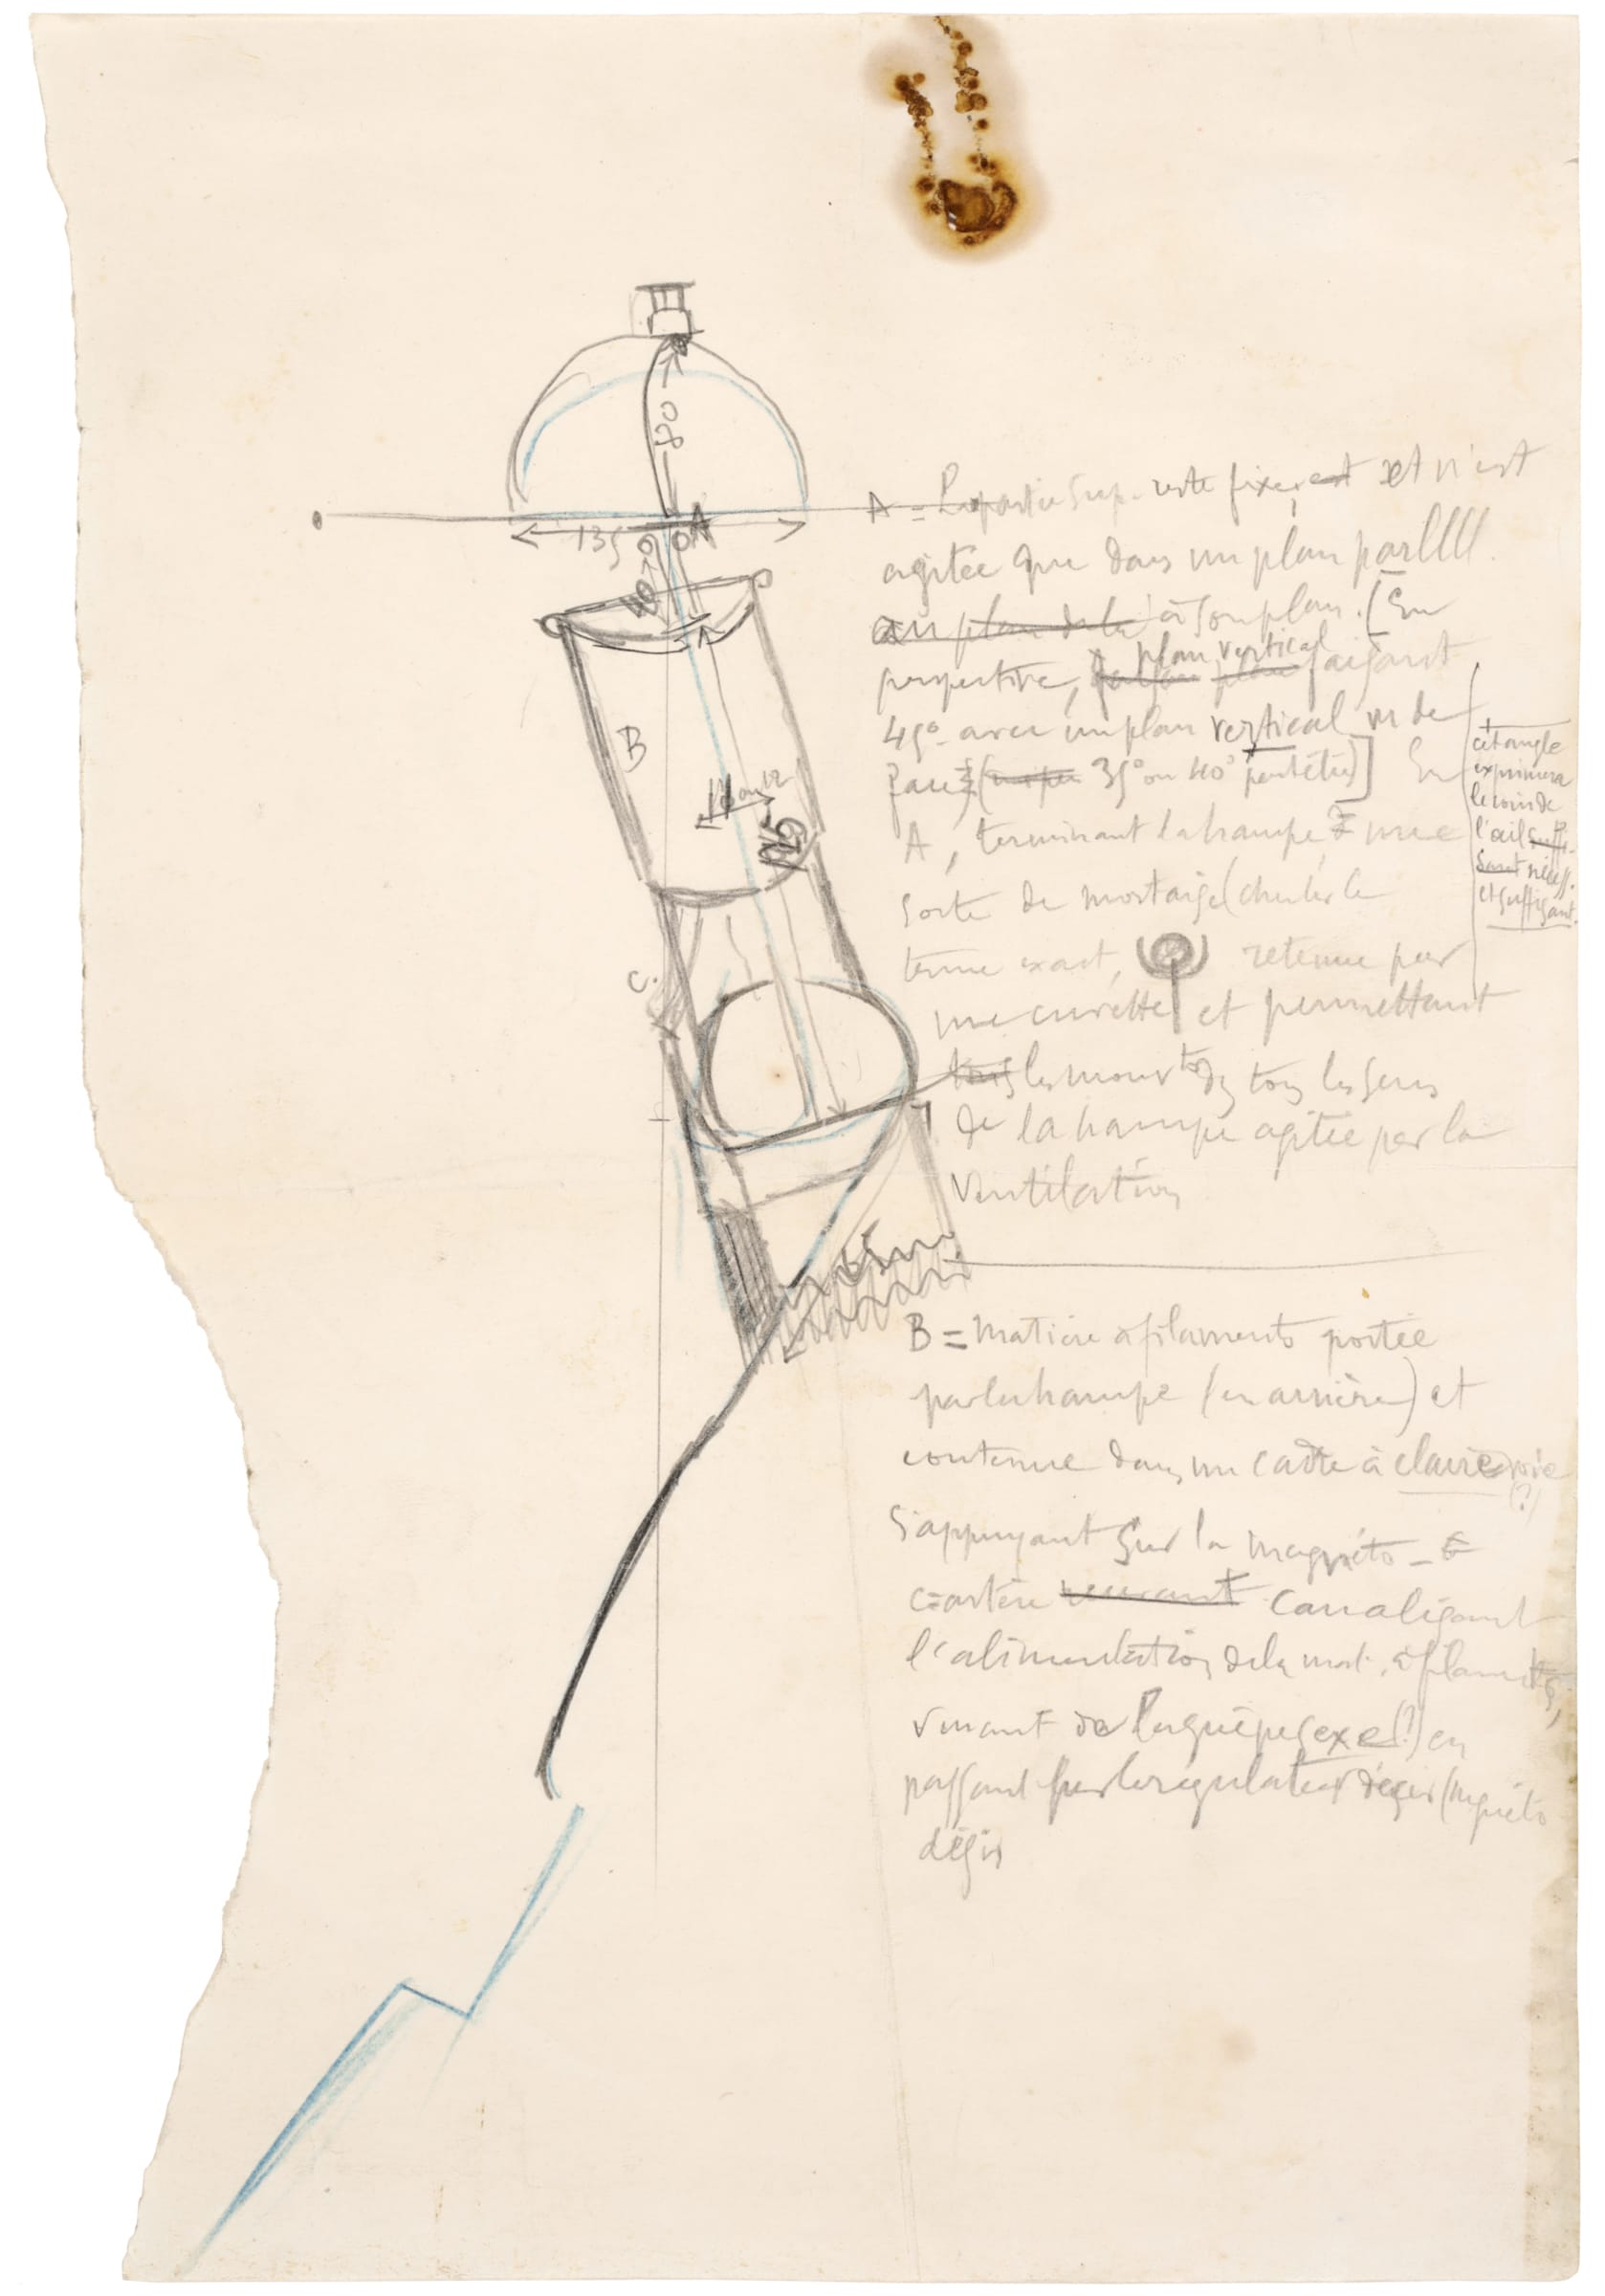 80
135
A
40
A
B
C.
A = La partie Sup. reste fixe, est et n'est
agitée que dans un plan parllll.
au plan de la à son plan. (En
plan vertical
perspective, faisant
45° avec un plan vertical vu de
face) (un peu 35° ou 40° peut être)] En
A, terminant la hampe, une
sorte de mortaise (chercher le
terme exact, retenue par
une cuvette et permettant
tous les mouvts ds tous les sens
de la hampe agitée par la
ventilation
cet angle
exprimera
le coin de
l'œil suffi-
sant nécess.
et suffisant.
B = Matière à filaments portée
par la hampe (en arrière) et
contenue dans un cadre à claire voie
(?)
s'appuyant sur la magnéto -
C = artère venant canalisant
l'alimentation de la mat. à filaments,
venant de la guêpe sexe (?) en
passant par le régulateur désir (mgnéto
désir